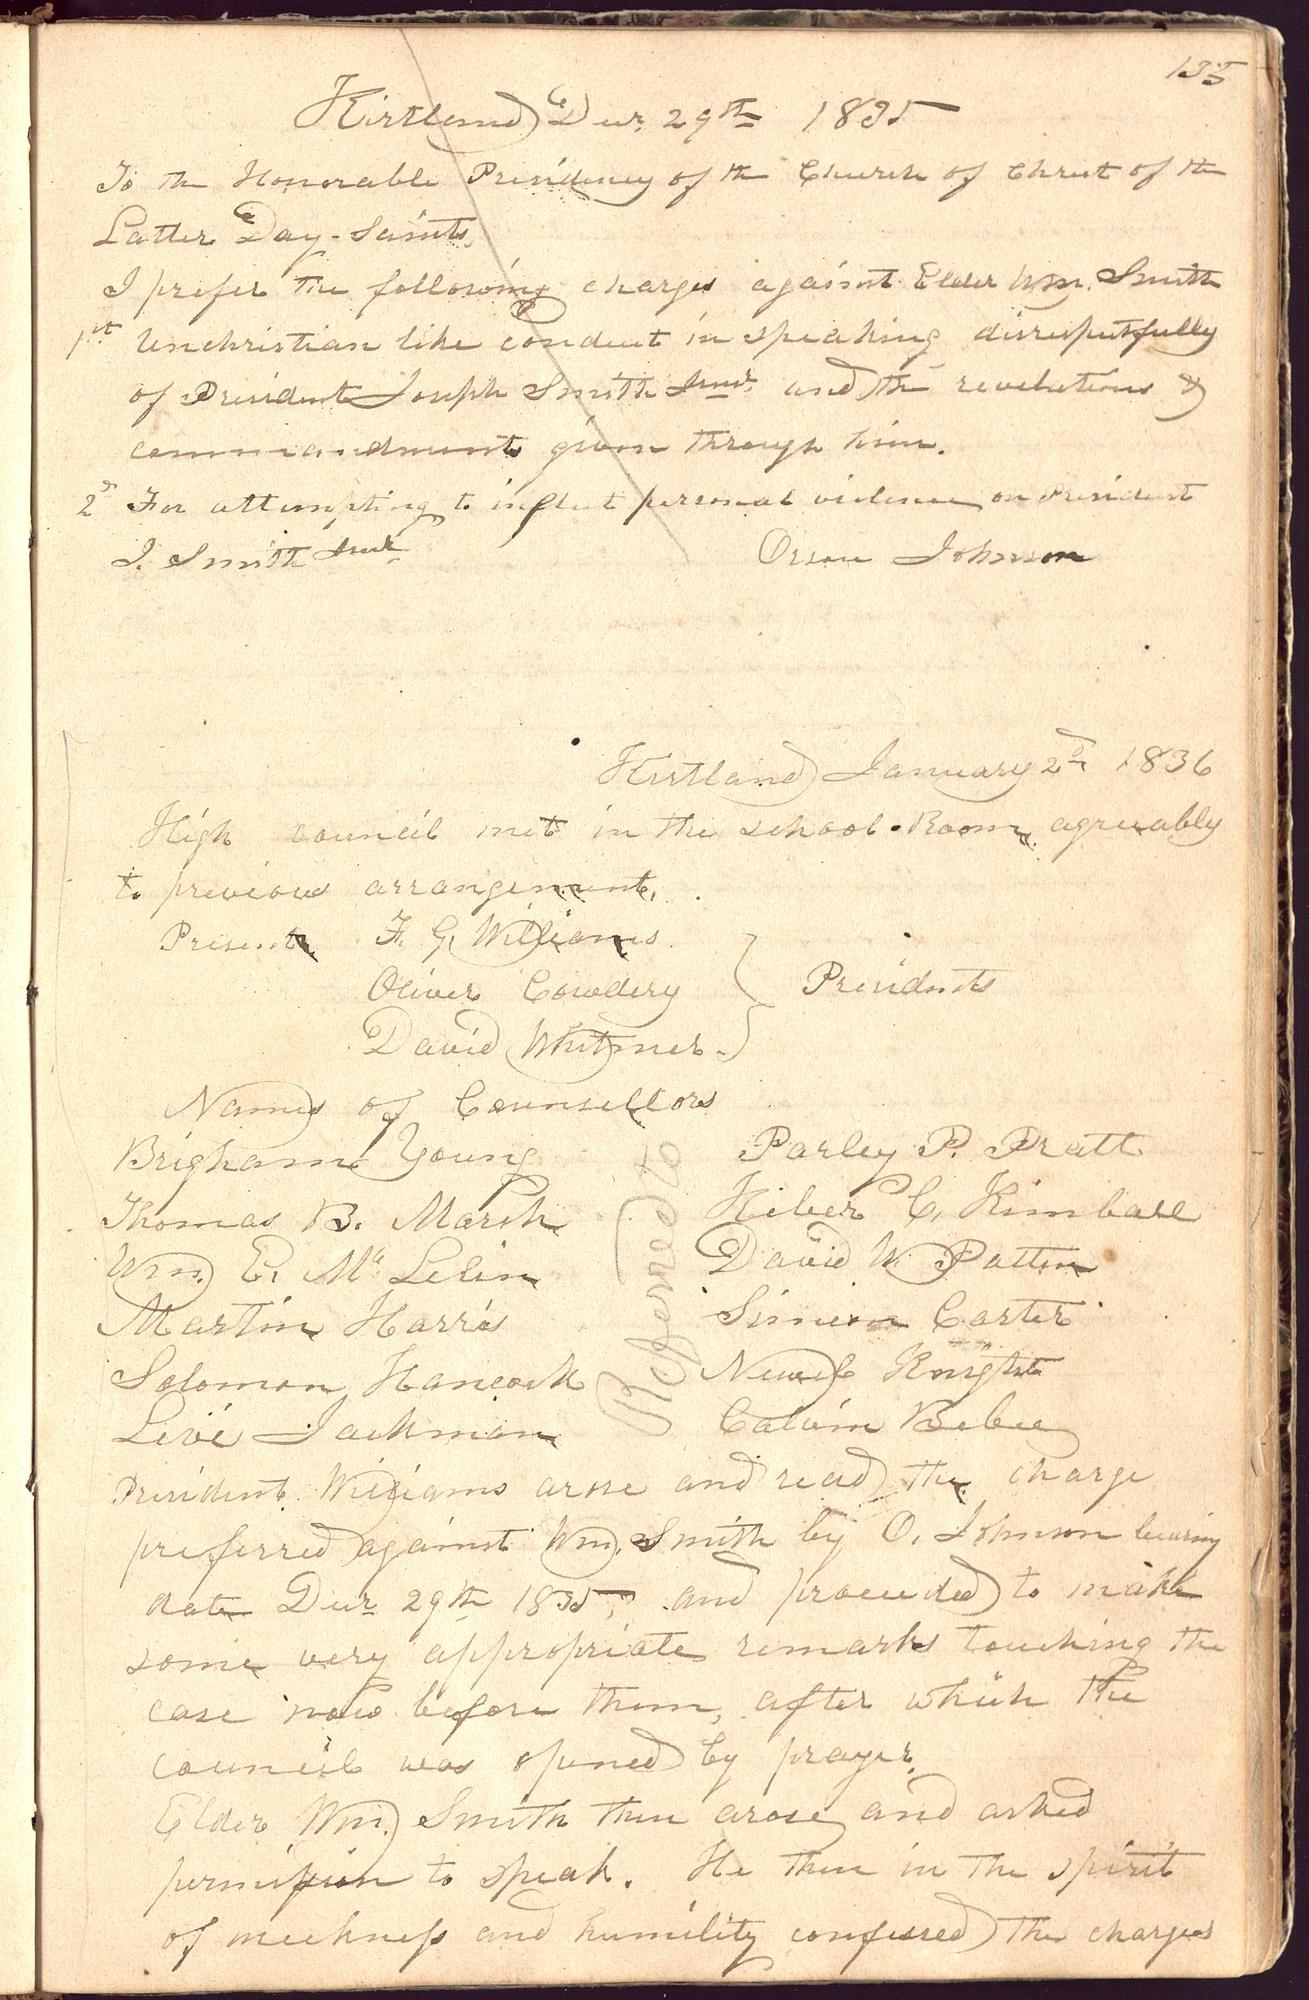 135
Kirtland Decr. 29th 1835
To the Honorable Presidency of the Church of Christ of the
Latter Day-Saints,
I prefer the following charges against Elder Wm. Smith
1st Unchristian like conduct in speaking disrespectfully
of President Joseph Smith Junr. and the revelations &
commandments given through him.
2d For attempting to inflict personal violence on President
J. Smith Junr.
Orson Johnson
Kirtland January 2d 1836
High council met in the school-Room agreeably
to previous arrangement,
Present F. G. Williams
Oliver Cowdery } Presidents
David Whitmer.
Names of Counsellors
Brigham Young Parley P. Pratt
Thomas B. Marsh Heber C. Kimball
Wm. E. Mc Lelin David W. Patten
Martin Harris Simeon Carter
Solomon Hancock Newel Knight
Levi Jackman Calvin Bebee
Referred to
President Williams arose and read the charge
preferred against Wm. Smith by O. Johnson bearing
date Decr 29th 1835, and proceeded to make
some very appropriate remarks touching the
case now before them, after which the
council was opened by prayer.
Elder Wm. Smith then arose and asked
permission to speak. He then in the spirit
of meekness and humility confessed the charges